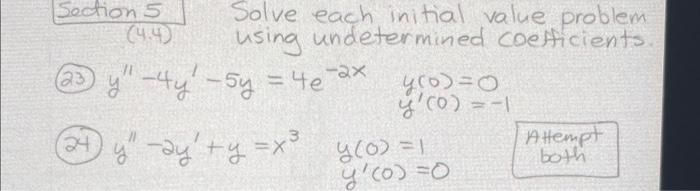 Section 5 Solve each initial value problem
(4.4) using undetermined coefficients.
23 y'' - 4y' - 5y = 4e^-2x y(0) = 0
y'(0) = -1
24 y'' - 2y' + y = x^3 y(0) = 1 Attempt
y'(0) = 0 both